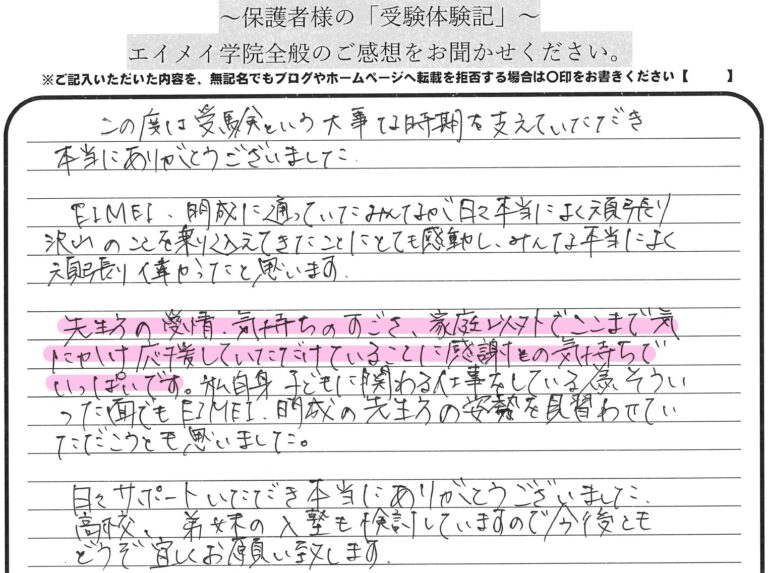 ～保護者様の「受験体験記」～
エイメイ学院全般のご感想をお聞かせください。
※ご記入いただいた内容を、無記名でもブログやホームページへ転載を拒否する場合は〇印をお書きください【　　】
この度は受験という大事な時期を支えていただき
本当にありがとうございました.
EIMEI、明成に通っていたみんなが日々本当によく頑張り
沢山のことを乗り越えてきたことにとても感動し、みんな本当によく
頑張り偉かったと思います.
先生方の愛情、気持ちのすごさ、家庭以外でここまで気
にかけ応援していただけていることに感謝の気持ちで
いっぱいです。私自身 子どもに関わる仕事をしている為 そうい
った面でもEIMEI、明成の先生方の姿勢を見習わせてい
ただこうとも思いました。
日々サポートいただき本当にありがとうございました.
高校、弟妹の入塾も検討していますので今後とも
どうぞ宜しくお願い致します.